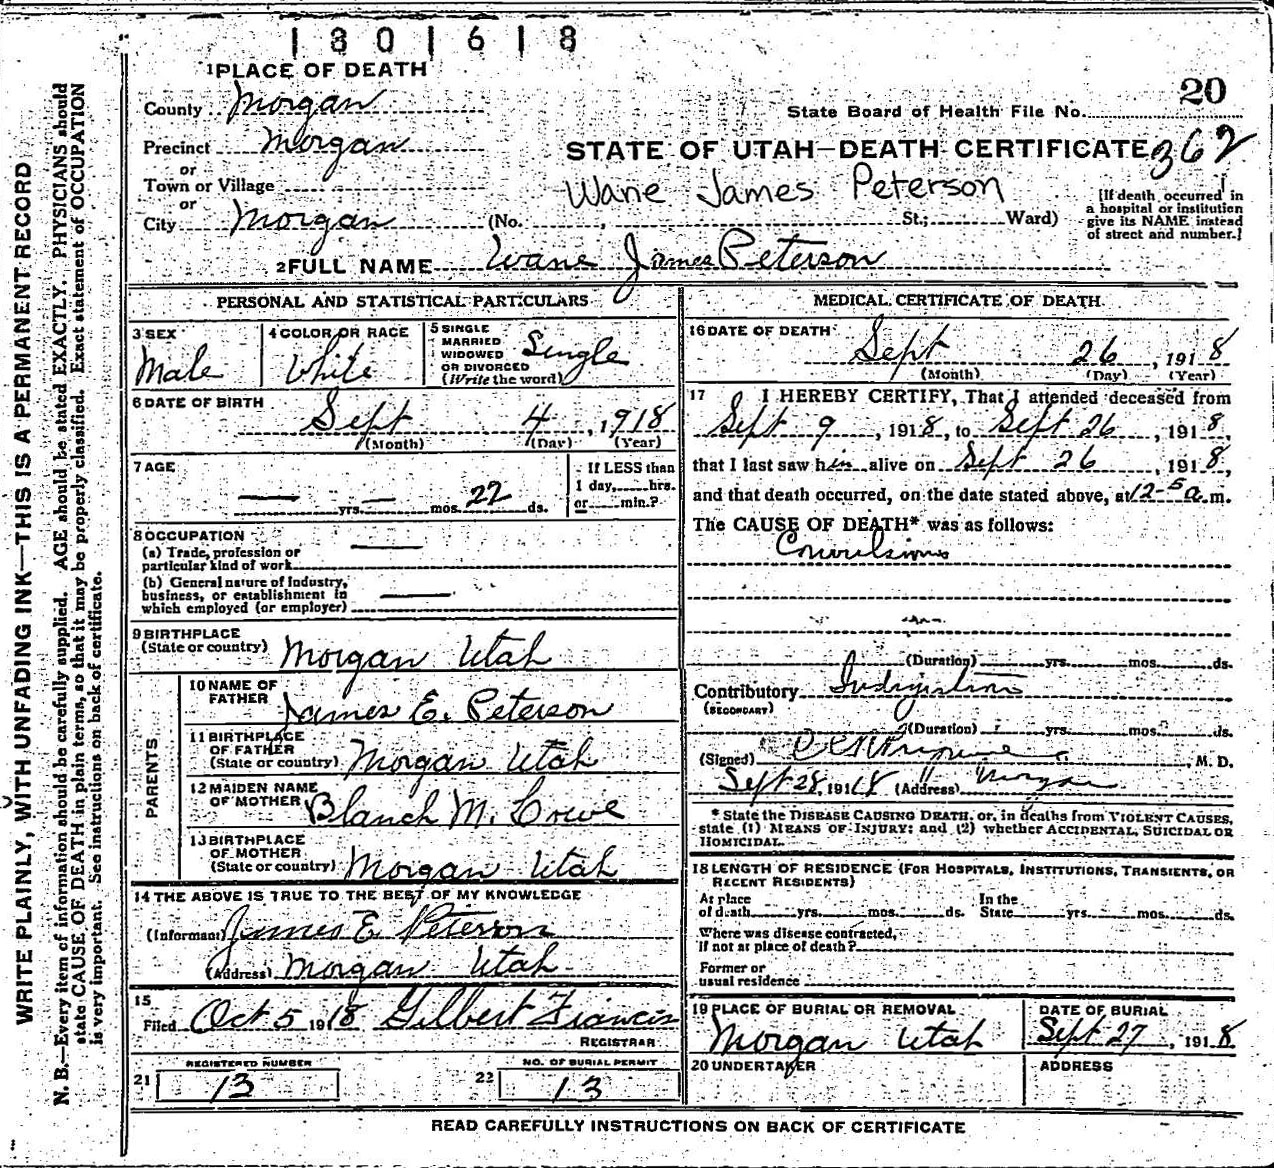 1801618
1 PLACE OF DEATH
20
County Morgan
State Board of Health File No.
Precinct Morgan
STATE OF UTAH—DEATH CERTIFICATE 362
or
Town or Village
Wane James Peterson
or
City Morgan (No. , St.; Ward)
[If death occurred in
a hospital or institution
give its NAME instead
of street and number.]
2 FULL NAME Wane James Peterson
PERSONAL AND STATISTICAL PARTICULARS
3 SEX
Male
4 COLOR OR RACE
White
5 SINGLE
MARRIED
WIDOWED
OR DIVORCED
(Write the word)
Single
6 DATE OF BIRTH
Sept 4, 1918
(Month) (Day) (Year)
7 AGE
— yrs. — mos. 22 ds.
If LESS than
1 day, hrs.
or min.?
8 OCCUPATION
(a) Trade, profession or
particular kind of work —
(b) General nature of Industry,
business, or establishment in
which employed (or employer) —
9 BIRTHPLACE
(State or country) Morgan Utah
PARENTS
10 NAME OF
FATHER James E. Peterson
11 BIRTHPLACE
OF FATHER
(State or country) Morgan Utah
12 MAIDEN NAME
OF MOTHER Blanch M. Crowe
13 BIRTHPLACE
OF MOTHER
(State or country) Morgan Utah
14 THE ABOVE IS TRUE TO THE BEST OF MY KNOWLEDGE
(Informant) James E Peterson
(Address) Morgan Utah
15
Filed Oct 5 1918 Gilbert Francis
REGISTRAR
REGISTERED NUMBER
21 13
NO. OF BURIAL PERMIT
22 13
MEDICAL CERTIFICATE OF DEATH
16 DATE OF DEATH
Sept 26, 1918
(Month) (Day) (Year)
17 I HEREBY CERTIFY, That I attended deceased from
Sept 9, 1918, to Sept 26, 1918,
that I last saw him alive on Sept 26, 1918,
and that death occurred, on the date stated above, at 12-5 a.m.
The CAUSE OF DEATH* was as follows:
Convulsions
(Duration) yrs. mos. ds.
Contributory Indigestion
(SECONDARY)
(Duration) yrs. mos. ds.
(Signed) M. D.
Sept 28, 1918 (Address) Morgan
* State the DISEASE CAUSING DEATH, or, in deaths from VIOLENT CAUSES,
state (1) MEANS OF INJURY; and (2) whether ACCIDENTAL, SUICIDAL OR
HOMICIDAL.
18 LENGTH OF RESIDENCE (FOR HOSPITALS, INSTITUTIONS, TRANSIENTS, OR
RECENT RESIDENTS)
At place In the
of death yrs. mos. ds. State yrs. mos. ds.
Where was disease contracted,
if not at place of death?
Former or
usual residence
19 PLACE OF BURIAL OR REMOVAL
Morgan Utah
DATE OF BURIAL
Sept 27, 1918
20 UNDERTAKER
ADDRESS
READ CAREFULLY INSTRUCTIONS ON BACK OF CERTIFICATE
WRITE PLAINLY, WITH UNFADING INK—THIS IS A PERMANENT RECORD
N. B.—Every item of information should be carefully supplied. AGE should be stated EXACTLY. PHYSICIANS should
state CAUSE OF DEATH in plain terms, so that it may be properly classified. Exact statement of OCCUPATION
is very important. See instructions on back of certificate.